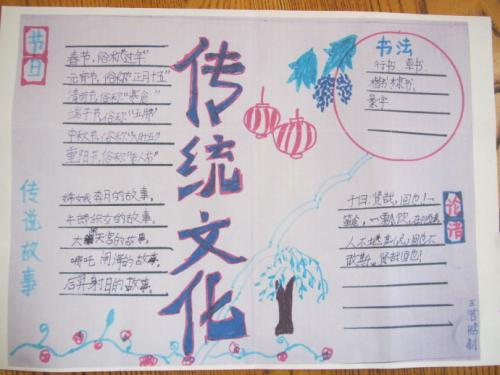 节日
春节,俗称"过年"
元宵节,俗称"正月十五"
清明节,俗称"寒食"
端午节,俗称"五月"
中秋节,俗称"八月十五"
重阳节,俗称"老人节"
传说故事
嫦娥奔月的故事。
牛郎织女的故事。
大闹天宫的故事。
哪吒闹海的故事。
后羿射日的故事。
传统文化
书法
行书 草书
楷书 隶书
篆字
论语
子曰:贤哉,回也!一
箪食,一瓢饮,在陋巷
人不堪其忧,回也不
改其乐。贤哉回也!